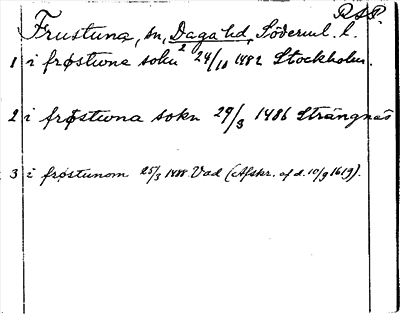 R.A.P.
Frustuna, sn, Daga hd, Söderml. l.
2
1 i frøstwne sokn 24/10 1482 Stockholm.
2 i frøstwna sokn 29/3 1486 Strängnäs
3 i frøstunom 25/3 1488 Vad (Afskr. af d. 10/9 1619).